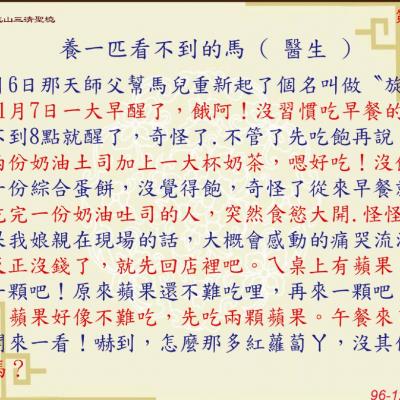 山三清聖境
養一匹看不到的馬 ( 醫生 )
月6日那天師父幫馬兒重新起了個名叫做〝旅
1月7日一大早醒了，餓阿！沒習慣吃早餐的
不到8點就醒了，奇怪了.不管了先吃飽再說
兩份奶油土司加上一大杯奶茶，嗯好吃！沒
一份綜合蛋餅，沒覺得飽，奇怪了從來早餐
吃完一份奶油吐司的人，突然食慾大開.怪怪
果我娘親在現場的話，大概會感動的痛哭流
反正沒錢了，就先回店裡吧。八桌上有蘋果
一顆吧！原來蘋果還不難吃哩，再來一顆吧
，蘋果好像不難吃，先吃兩顆蘋果。午餐來
開來一看！嚇到，怎麼那多紅蘿蔔丫，沒其
馬？
96-1